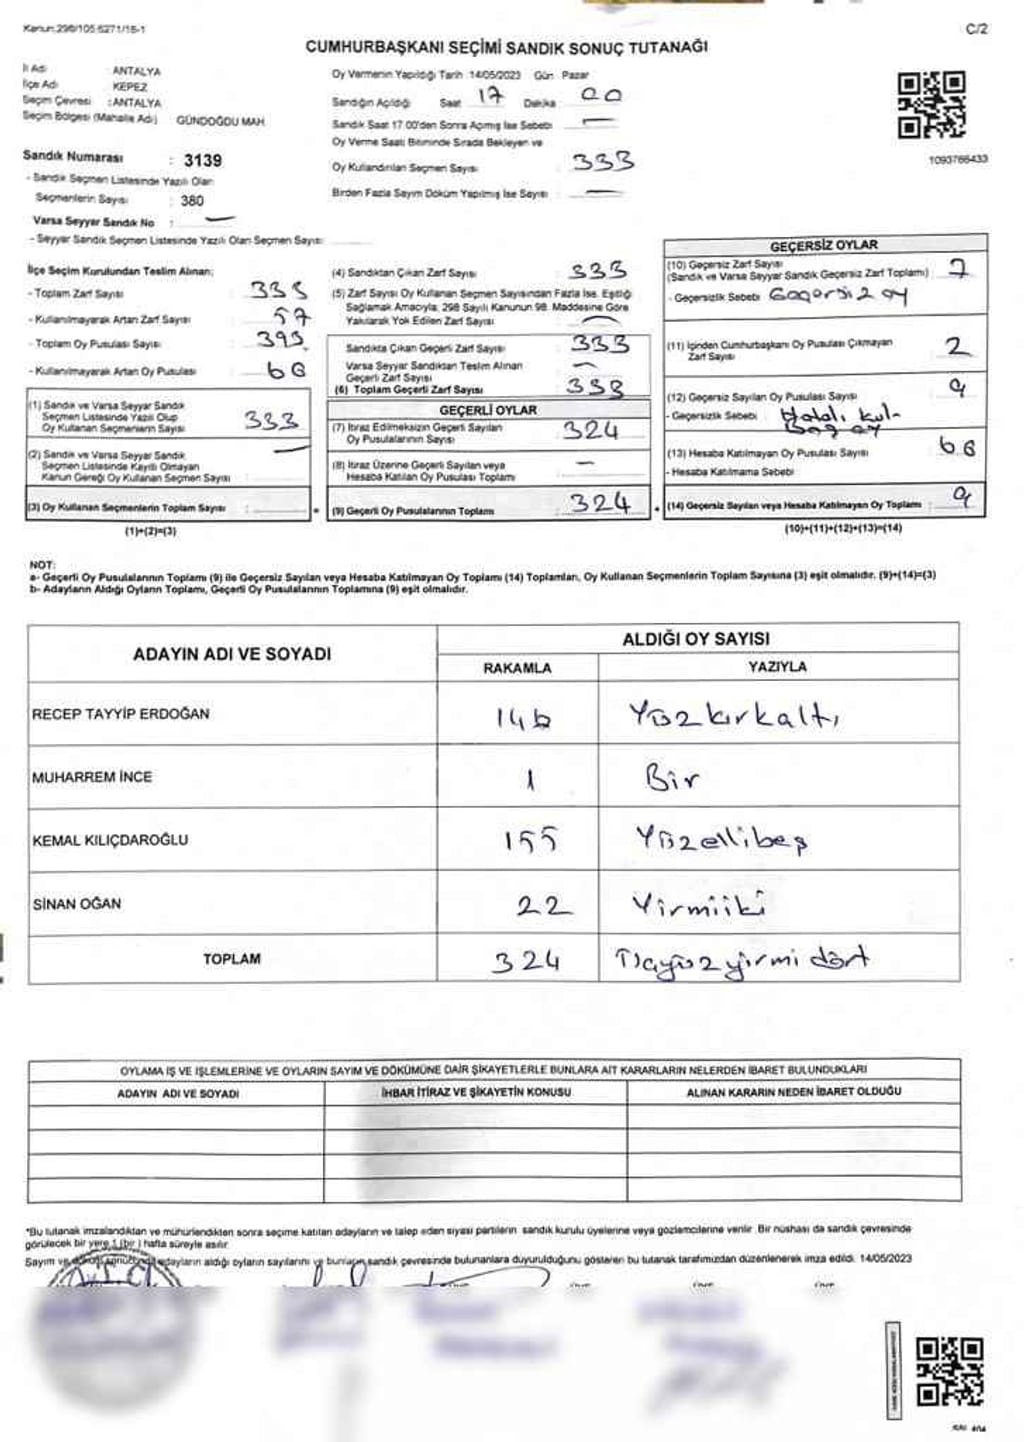 Kanun:298/105 6271/16-1
C/2
CUMHURBAŞKANI SEÇİMİ SANDIK SONUÇ TUTANAĞI
İl Adı : ANTALYA
İlçe Adı : KEPEZ
Seçim Çevresi : ANTALYA
Seçim Bölgesi (Mahalle Adı) : GÜNDOĞDU MAH.
Sandık Numarası : 3139
- Sandık Seçmen Listesinde Yazılı Olan
Seçmenlerin Sayısı : 380
Varsa Seyyar Sandık No : —
- Seyyar Sandık Seçmen Listesinde Yazılı Olan Seçmen Sayısı:
Oy Vermenin Yapıldığı Tarih 14/05/2023 Gün Pazar
Sandığın Açıldığı Saat 17 Dakika 00
Sandık Saat 17.00'den Sonra Açılmış İse Sebebi : —
Oy Verme Saati Bitiminde Sırada Bekleyen ve
Oy Kullandırılan Seçmen Sayısı : 333
Birden Fazla Sayım Döküm Yapılmış İse Sayısı : —
1093766433
İlçe Seçim Kurulundan Teslim Alınan:
- Toplam Zarf Sayısı :
- Kullanılmayarak Artan Zarf Sayısı : 57
- Toplam Oy Pusulası Sayısı :
- Kullanılmayarak Artan Oy Pusulası :
(1) Sandık ve Varsa Seyyar Sandık
Seçmen Listesinde Yazılı Olup
Oy Kullanan Seçmenlerin Sayısı : 333
(2) Sandık ve Varsa Seyyar Sandık
Seçmen Listesinde Kayıtlı Olmayan
Kanun Gereği Oy Kullanan Seçmen Sayısı : —
(3) Oy Kullanan Seçmenlerin Toplam Sayısı :
(1)+(2)=(3)
(4) Sandıktan Çıkan Zarf Sayısı : 333
(5) Zarf Sayısı Oy Kullanan Seçmen Sayısından Fazla İse, Eşitliği
Sağlamak Amacıyla, 298 Sayılı Kanunun 98. Maddesine Göre
Yakılarak Yok Edilen Zarf Sayısı : —
Sandıkta Çıkan Geçerli Zarf Sayısı : 333
Varsa Seyyar Sandıktan Teslim Alınan
Geçerli Zarf Sayısı : —
(6) Toplam Geçerli Zarf Sayısı : 333
GEÇERLİ OYLAR
(7) İtiraz Edilmeksizin Geçerli Sayılan
Oy Pusulalarının Sayısı : 324
(8) İtiraz Üzerine Geçerli Sayılan veya
Hesaba Katılan Oy Pusulası Toplamı : —
(9) Geçerli Oy Pusulalarının Toplamı : 324
GEÇERSİZ OYLAR
(10) Geçersiz Zarf Sayısı
(Sandık ve Varsa Seyyar Sandık Geçersiz Zarf Toplamı) : 7
- Geçersizlik Sebebi : Geçersiz oy
(11) İçinden Cumhurbaşkanı Oy Pusulası Çıkmayan
Zarf Sayısı : 2
(12) Geçersiz Sayılan Oy Pusulası Sayısı : 9
- Geçersizlik Sebebi : Hatalı kul-
oy
(13) Hesaba Katılmayan Oy Pusulası Sayısı :
- Hesaba Katılmama Sebebi
(14) Geçersiz Sayılan veya Hesaba Katılmayan Oy Toplamı : 9
(10)+(11)+(12)+(13)=(14)
NOT:
a- Geçerli Oy Pusulalarının Toplamı (9) ile Geçersiz Sayılan veya Hesaba Katılmayan Oy Toplamı (14) Toplamları, Oy Kullanan Seçmenlerin Toplam Sayısına (3) eşit olmalıdır. (9)+(14)=(3)
b- Adayların Aldığı Oyların Toplamı, Geçerli Oy Pusulalarının Toplamına (9) eşit olmalıdır.
ADAYIN ADI VE SOYADI
ALDIĞI OY SAYISI
RAKAMLA YAZIYLA
RECEP TAYYİP ERDOĞAN 146 Yüzkırkaltı
MUHARREM İNCE 1 Bir
KEMAL KILIÇDAROĞLU 155 Yüzellibeş
SİNAN OĞAN 22 Yirmiiki
TOPLAM 324 Üçyüzyirmi dört
OYLAMA İŞ VE İŞLEMLERİNE VE OYLARIN SAYIM VE DÖKÜMÜNE DAİR ŞİKAYETLERLE BUNLARA AİT KARARLARIN NELERDEN İBARET BULUNDUKLARI
ADAYIN ADI VE SOYADI İHBAR İTİRAZ VE ŞİKAYETİN KONUSU ALINAN KARARIN NEDEN İBARET OLDUĞU
*Bu tutanak imzalandıktan ve mühürlendikten sonra seçime katılan adayların ve talep eden siyasi partilerin sandık kurulu üyelerine veya gözlemcilerine verilir. Bir nüshası da sandık çevresinde
görülecek bir yere 1 (bir) hafta süreyle asılır.
Sayım ve döküm sonucunda adayların aldığı oyların sayılarını ve bunların sandık çevresinde bulunanlara duyurulduğunu gösteren bu tutanak tarafımızdan düzenlenerek imza edildi. 14/05/2023